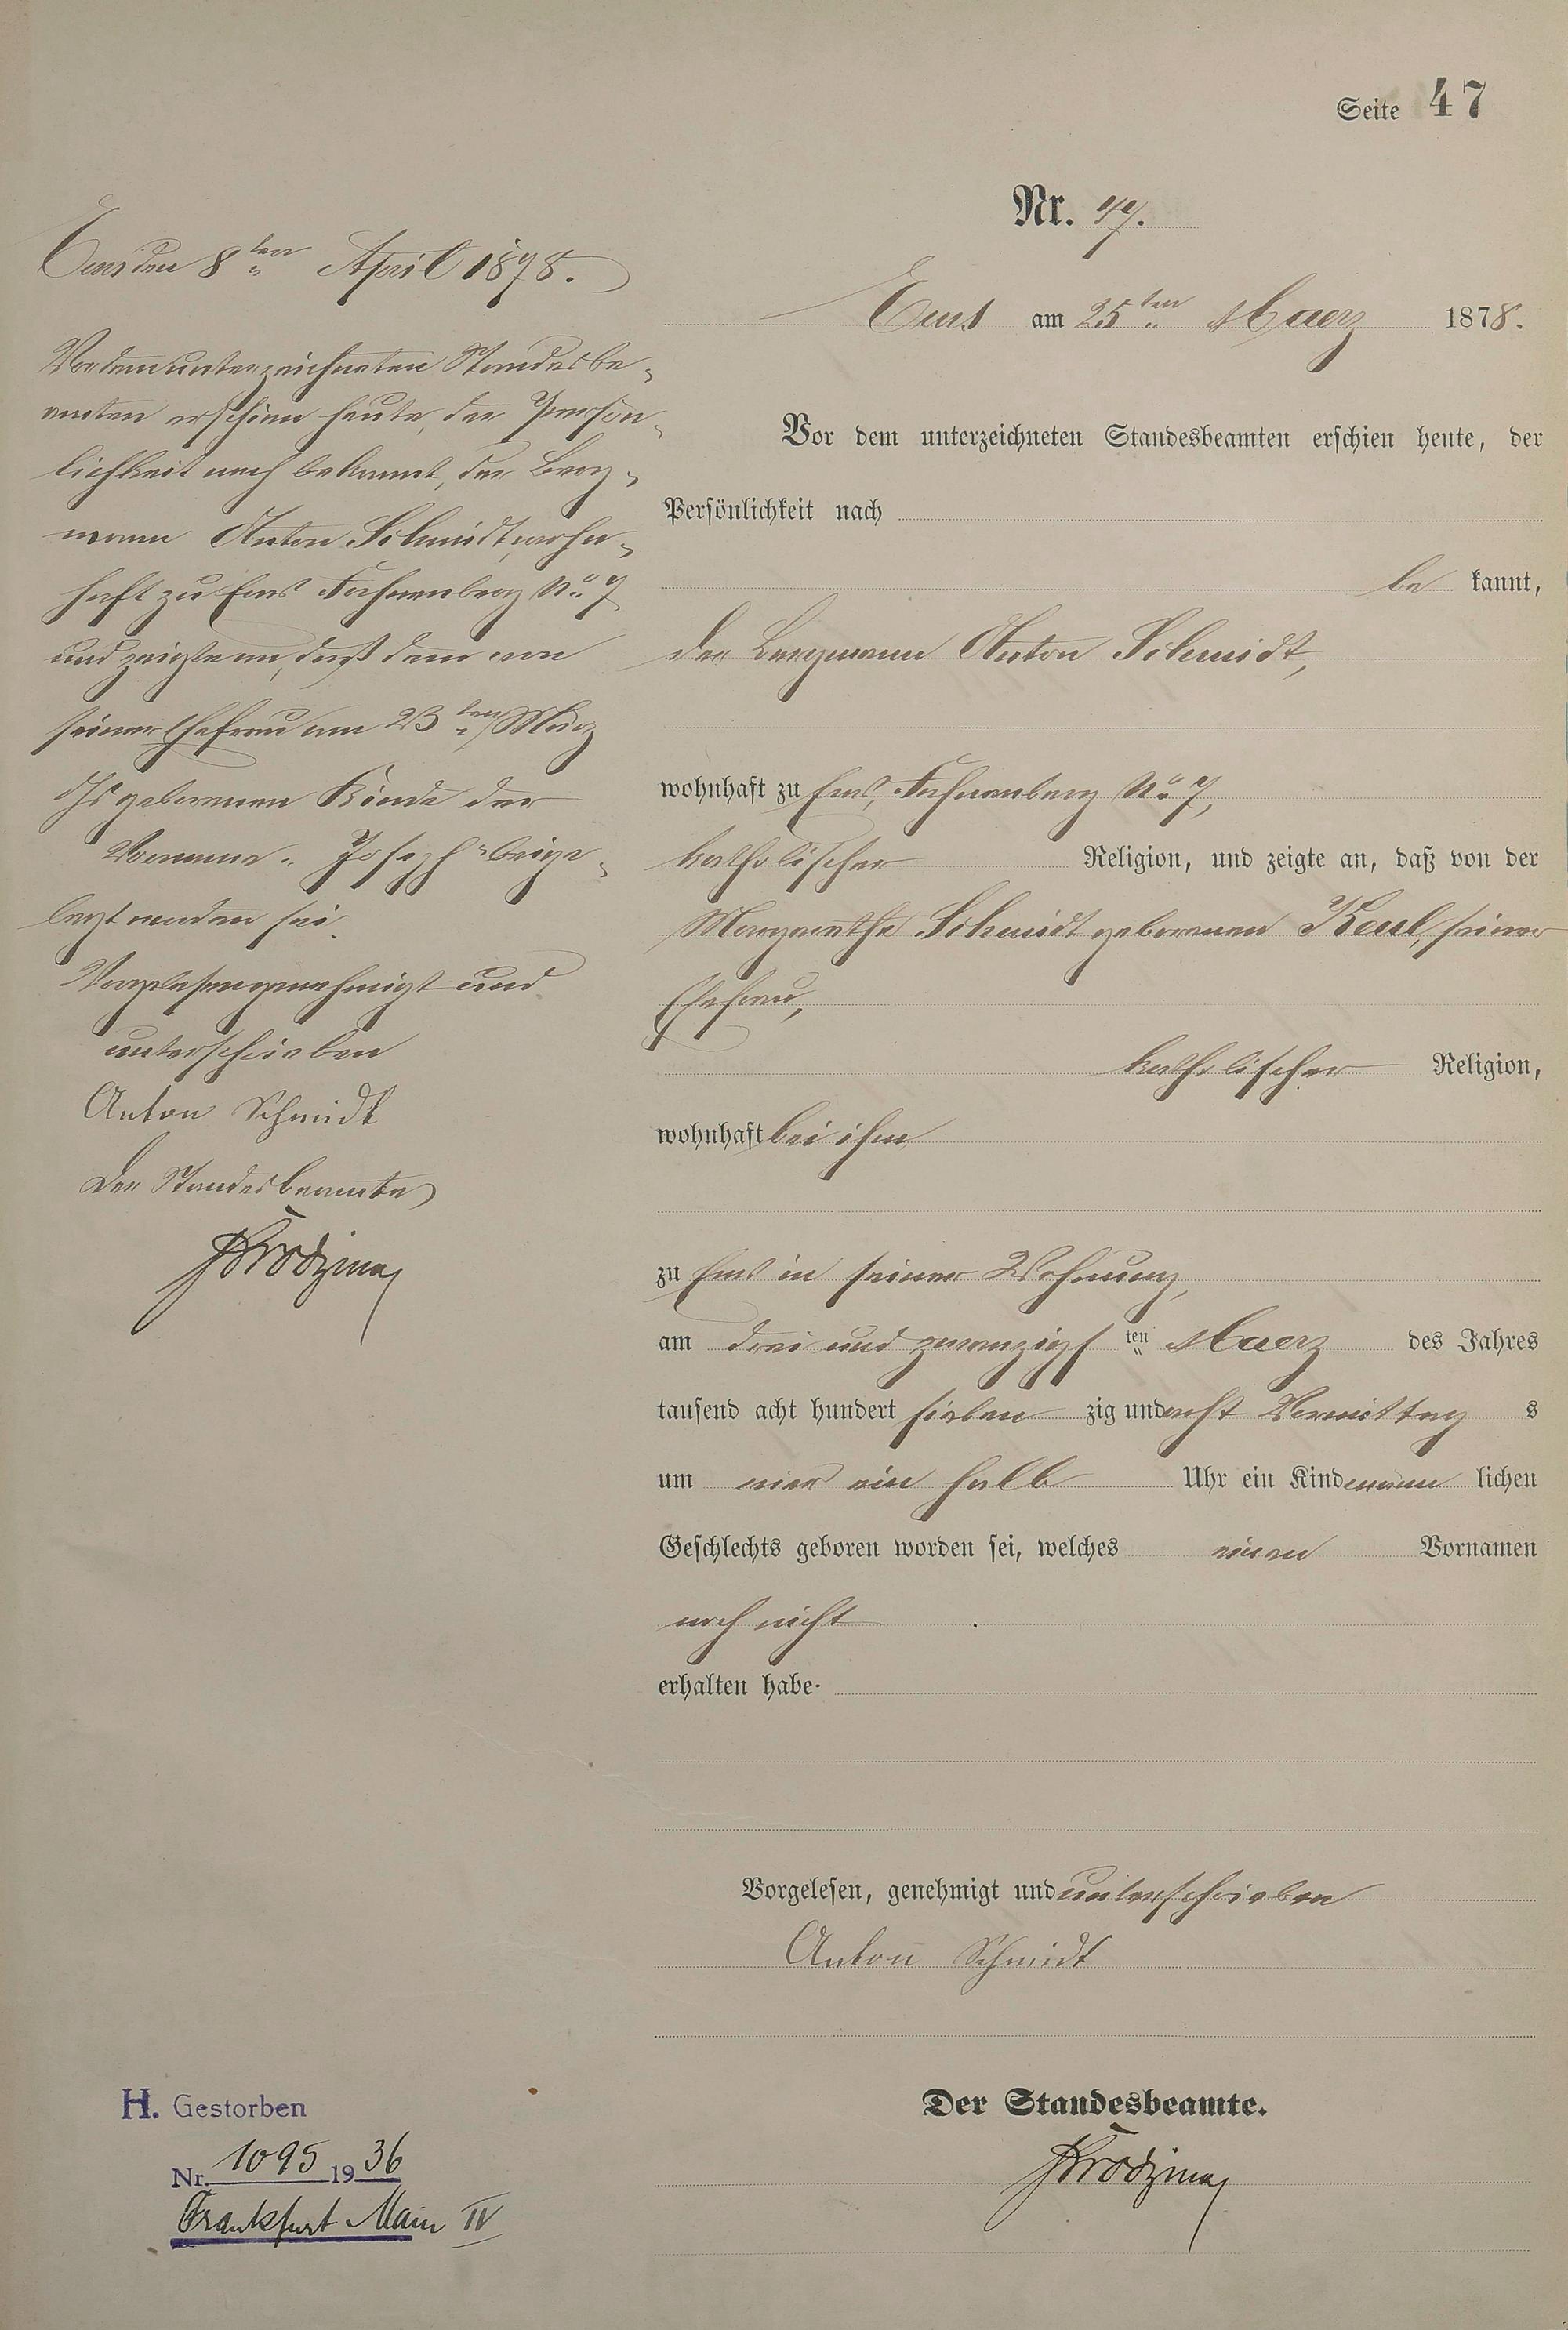 Seite 47
Nr. 47.
Ems am 25ten Maerz 1878.
Vor dem unterzeichneten Standesbeamten erschien heute, der
Persönlichkeit nach
be kannt,
der Bergmann Anton Schmidt,
wohnhaft zu Ems, Fahnenberg No 7,
katholischer Religion, und zeigte an, daß von der
Margarethe Schmidt geborenen Keul, seiner
Ehefrau,
katholischer Religion,
wohnhaft bei ihm
zu Ems in seiner Wohnung,
am drei und zwanzigsten Maerz des Jahres
tausend acht hundert sieben zig und acht Vormittag s
um vier ein halb Uhr ein Kind männ lichen
Geschlechts geboren worden sei, welches einen Vornamen
noch nicht
erhalten habe.
Vorgelesen, genehmigt und unterschrieben
Anton Schmidt
Der Standesbeamte.
Ems den 8ten April 1878.
Vor dem unterzeichneten Standesbe-
amten erschien heute, der Person-
lichkeit nach bekannt, der Berg-
mann Anton Schmidt, wohn-
haft zu Ems Fahnenberg No 7
und zeigte an, daß dem von
seiner Ehefrau am 23ten März
ds geborenen Kinde der
Vorname "Joseph" beige-
legt worden sei.
Vorgelesen genehmigt und
unterschrieben
Anton Schmidt
Der Standesbeamte
H. Gestorben
Nr. 1095 1936
Frankfurt Main IV